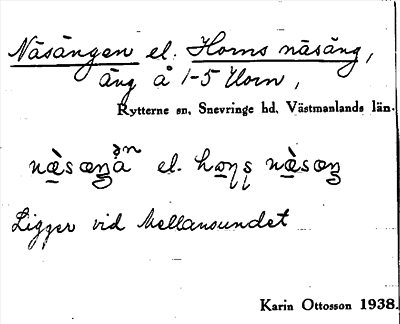 Näsängen el. Horns näsäng,
äng å 1-5 Horn,
Rytterne sn, Snevringe hd, Västmanlands län.
el.
Ligger vid Mellansundet
Karin Ottosson 1938.